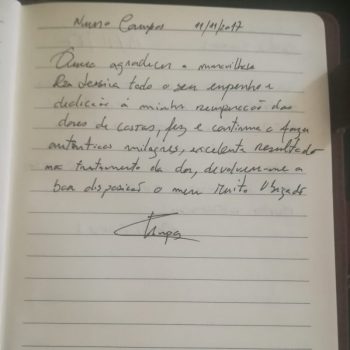 Nuno Campos 11/11/2017
Quero agradecer a maravilhosa
Dra Jessica todo o seu empenho e
dedicação à minha recuperação das
dores de costas, fez e continua a fazer
autênticos milagres, excelente resultado
no tratamento da dor, devolveu-me a
boa disposição o meu Muito Obrigado